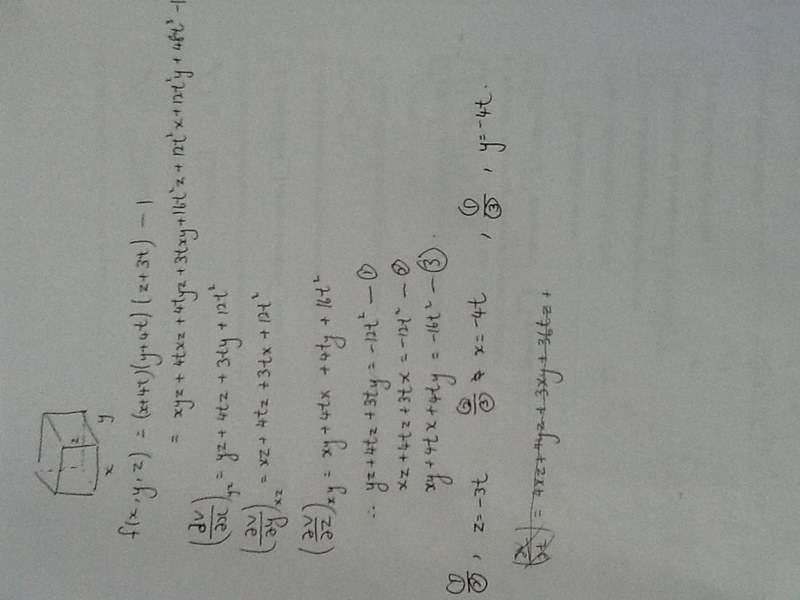 x y z
f(x,y,z) = (x+4t)(y+4t)(z+3t) - 1
= xyz + 4txz + 4tyz + 3txy + 16t²z + 12t²x + 12t²y + 48t³ - 1
(∂V/∂x)yz = yz + 4tz + 3ty + 12t²
(∂V/∂y)xz = xz + 4tz + 3tx + 12t²
(∂V/∂z)xy = xy + 4tx + 4ty + 16t²
∴ yz + 4tz + 3ty = -12t² — ①
xz + 4tz + 3tx = -12t² — ②
xy + 4tx + 4ty = -16t² — ③.
①/②, z = -3t ②/③ x = -4t , ①/③ , y = -4t.
= 4xz + 4yz + 3xy + 36tz +